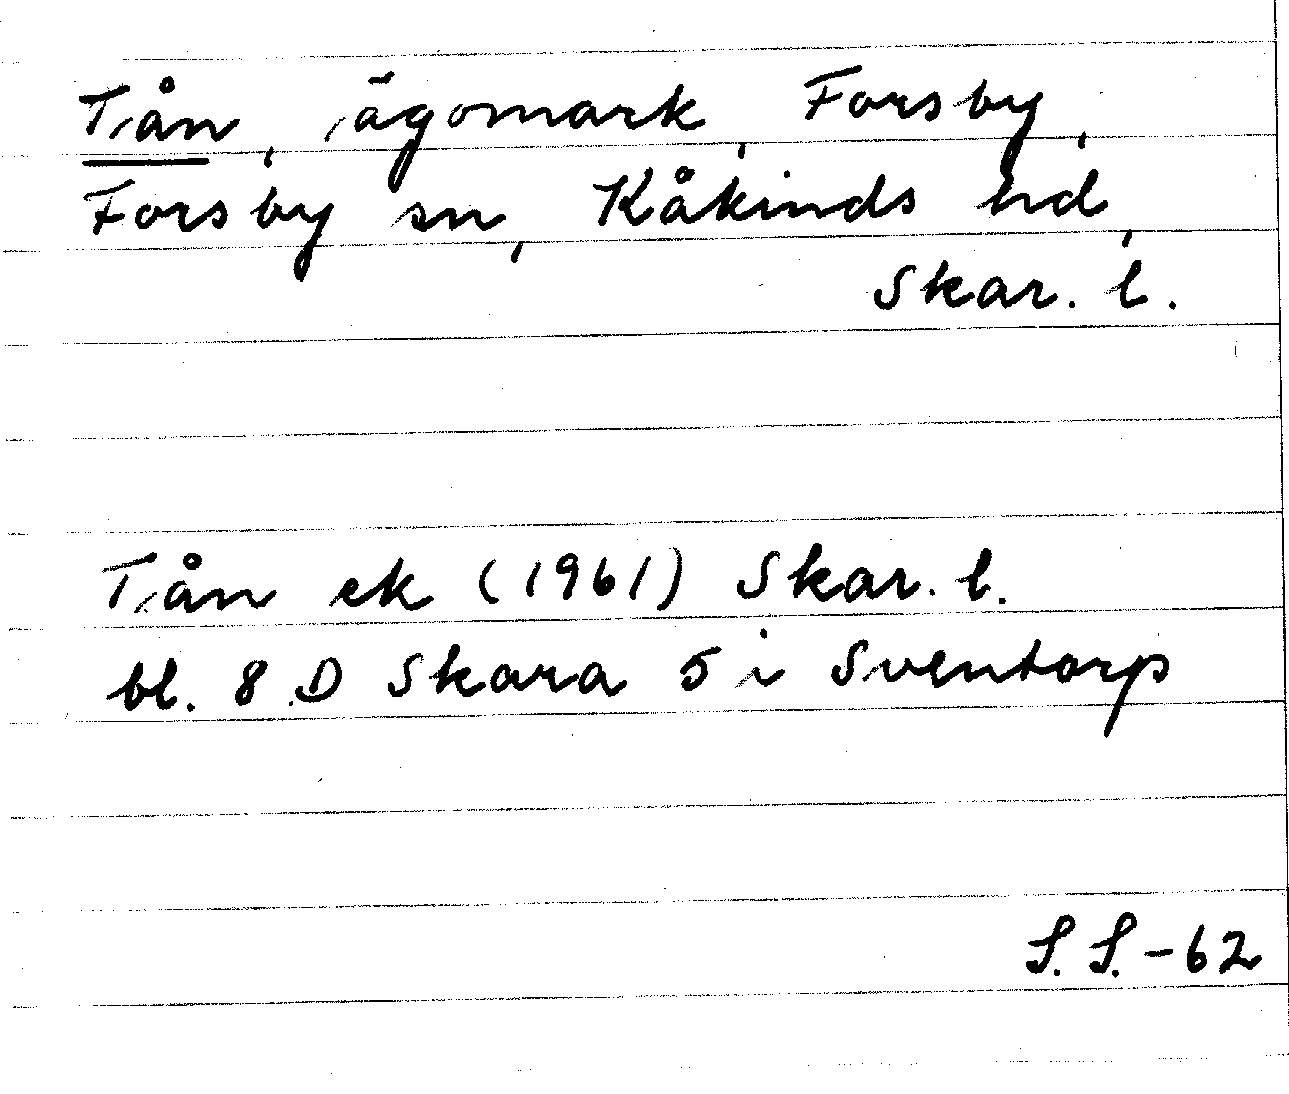 Tån, ägomark, Forsby,
Forsby sn, Kåkinds hd,
Skar. l.
Tån ek (1961) Skar. l.
bl. 8 D Skara 5 i Sventorp
S. S. -62